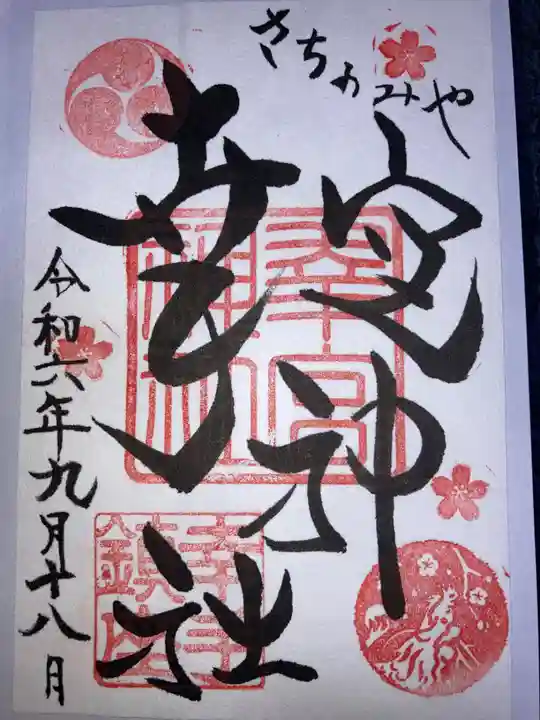 さちのみや
幸宮神社
令和六年九月十八日
幸宮
神社